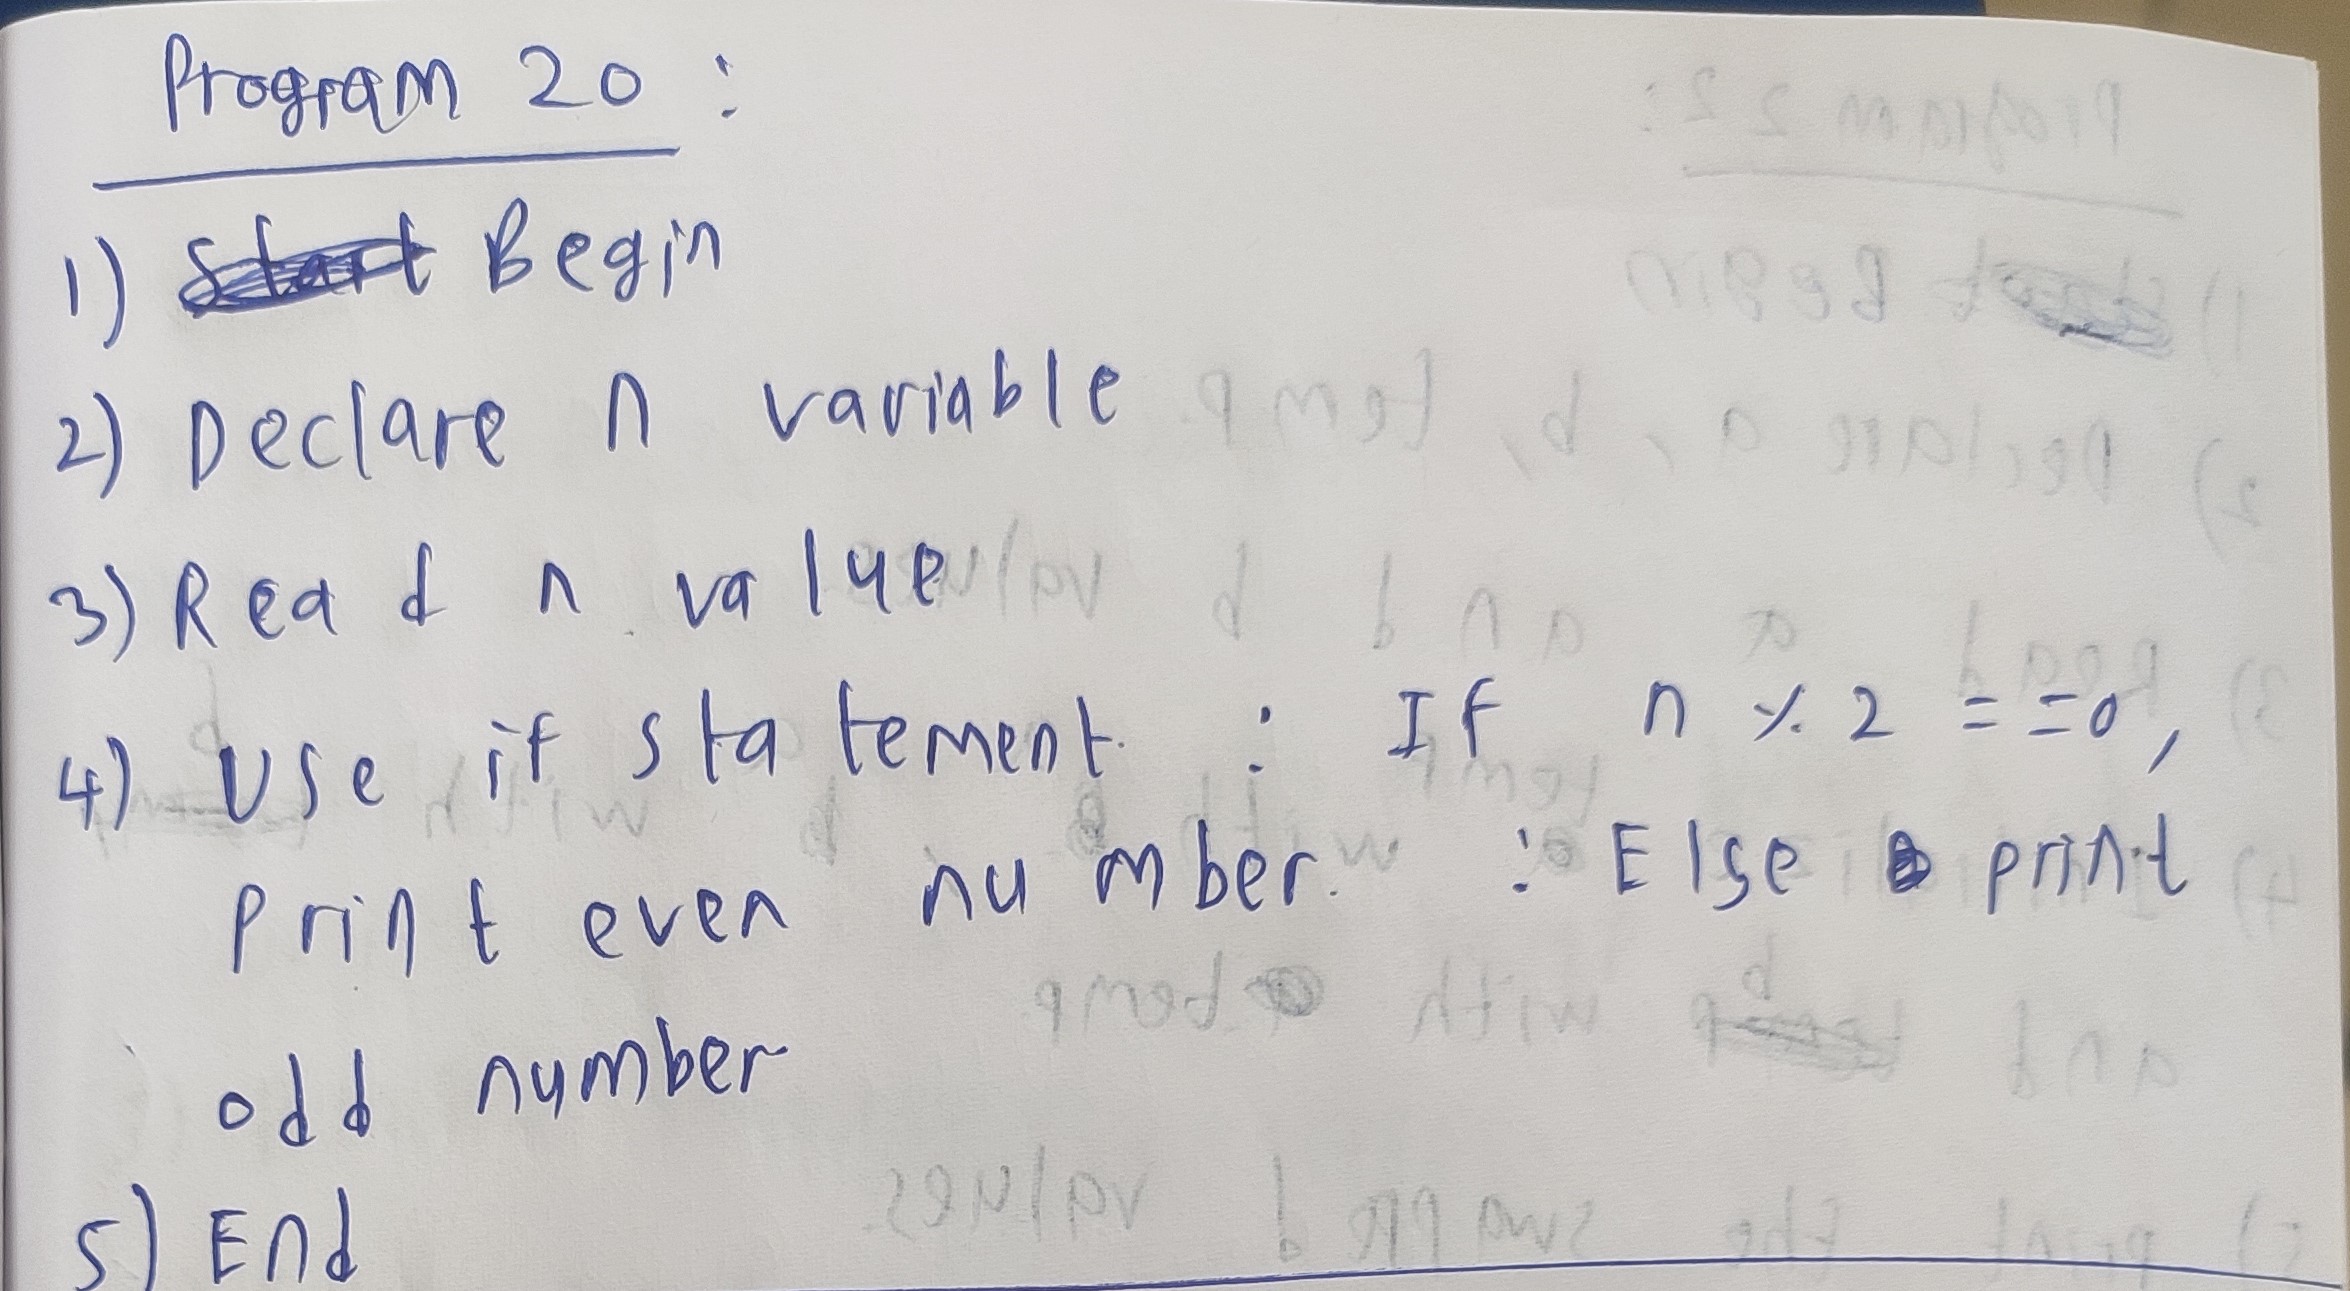 Program 20 :
1) Start Begin
2) Declare n variable
3) Read n value
4) Use if statement : If n % 2 = = 0,
print even number. : Else print
odd number
5) End